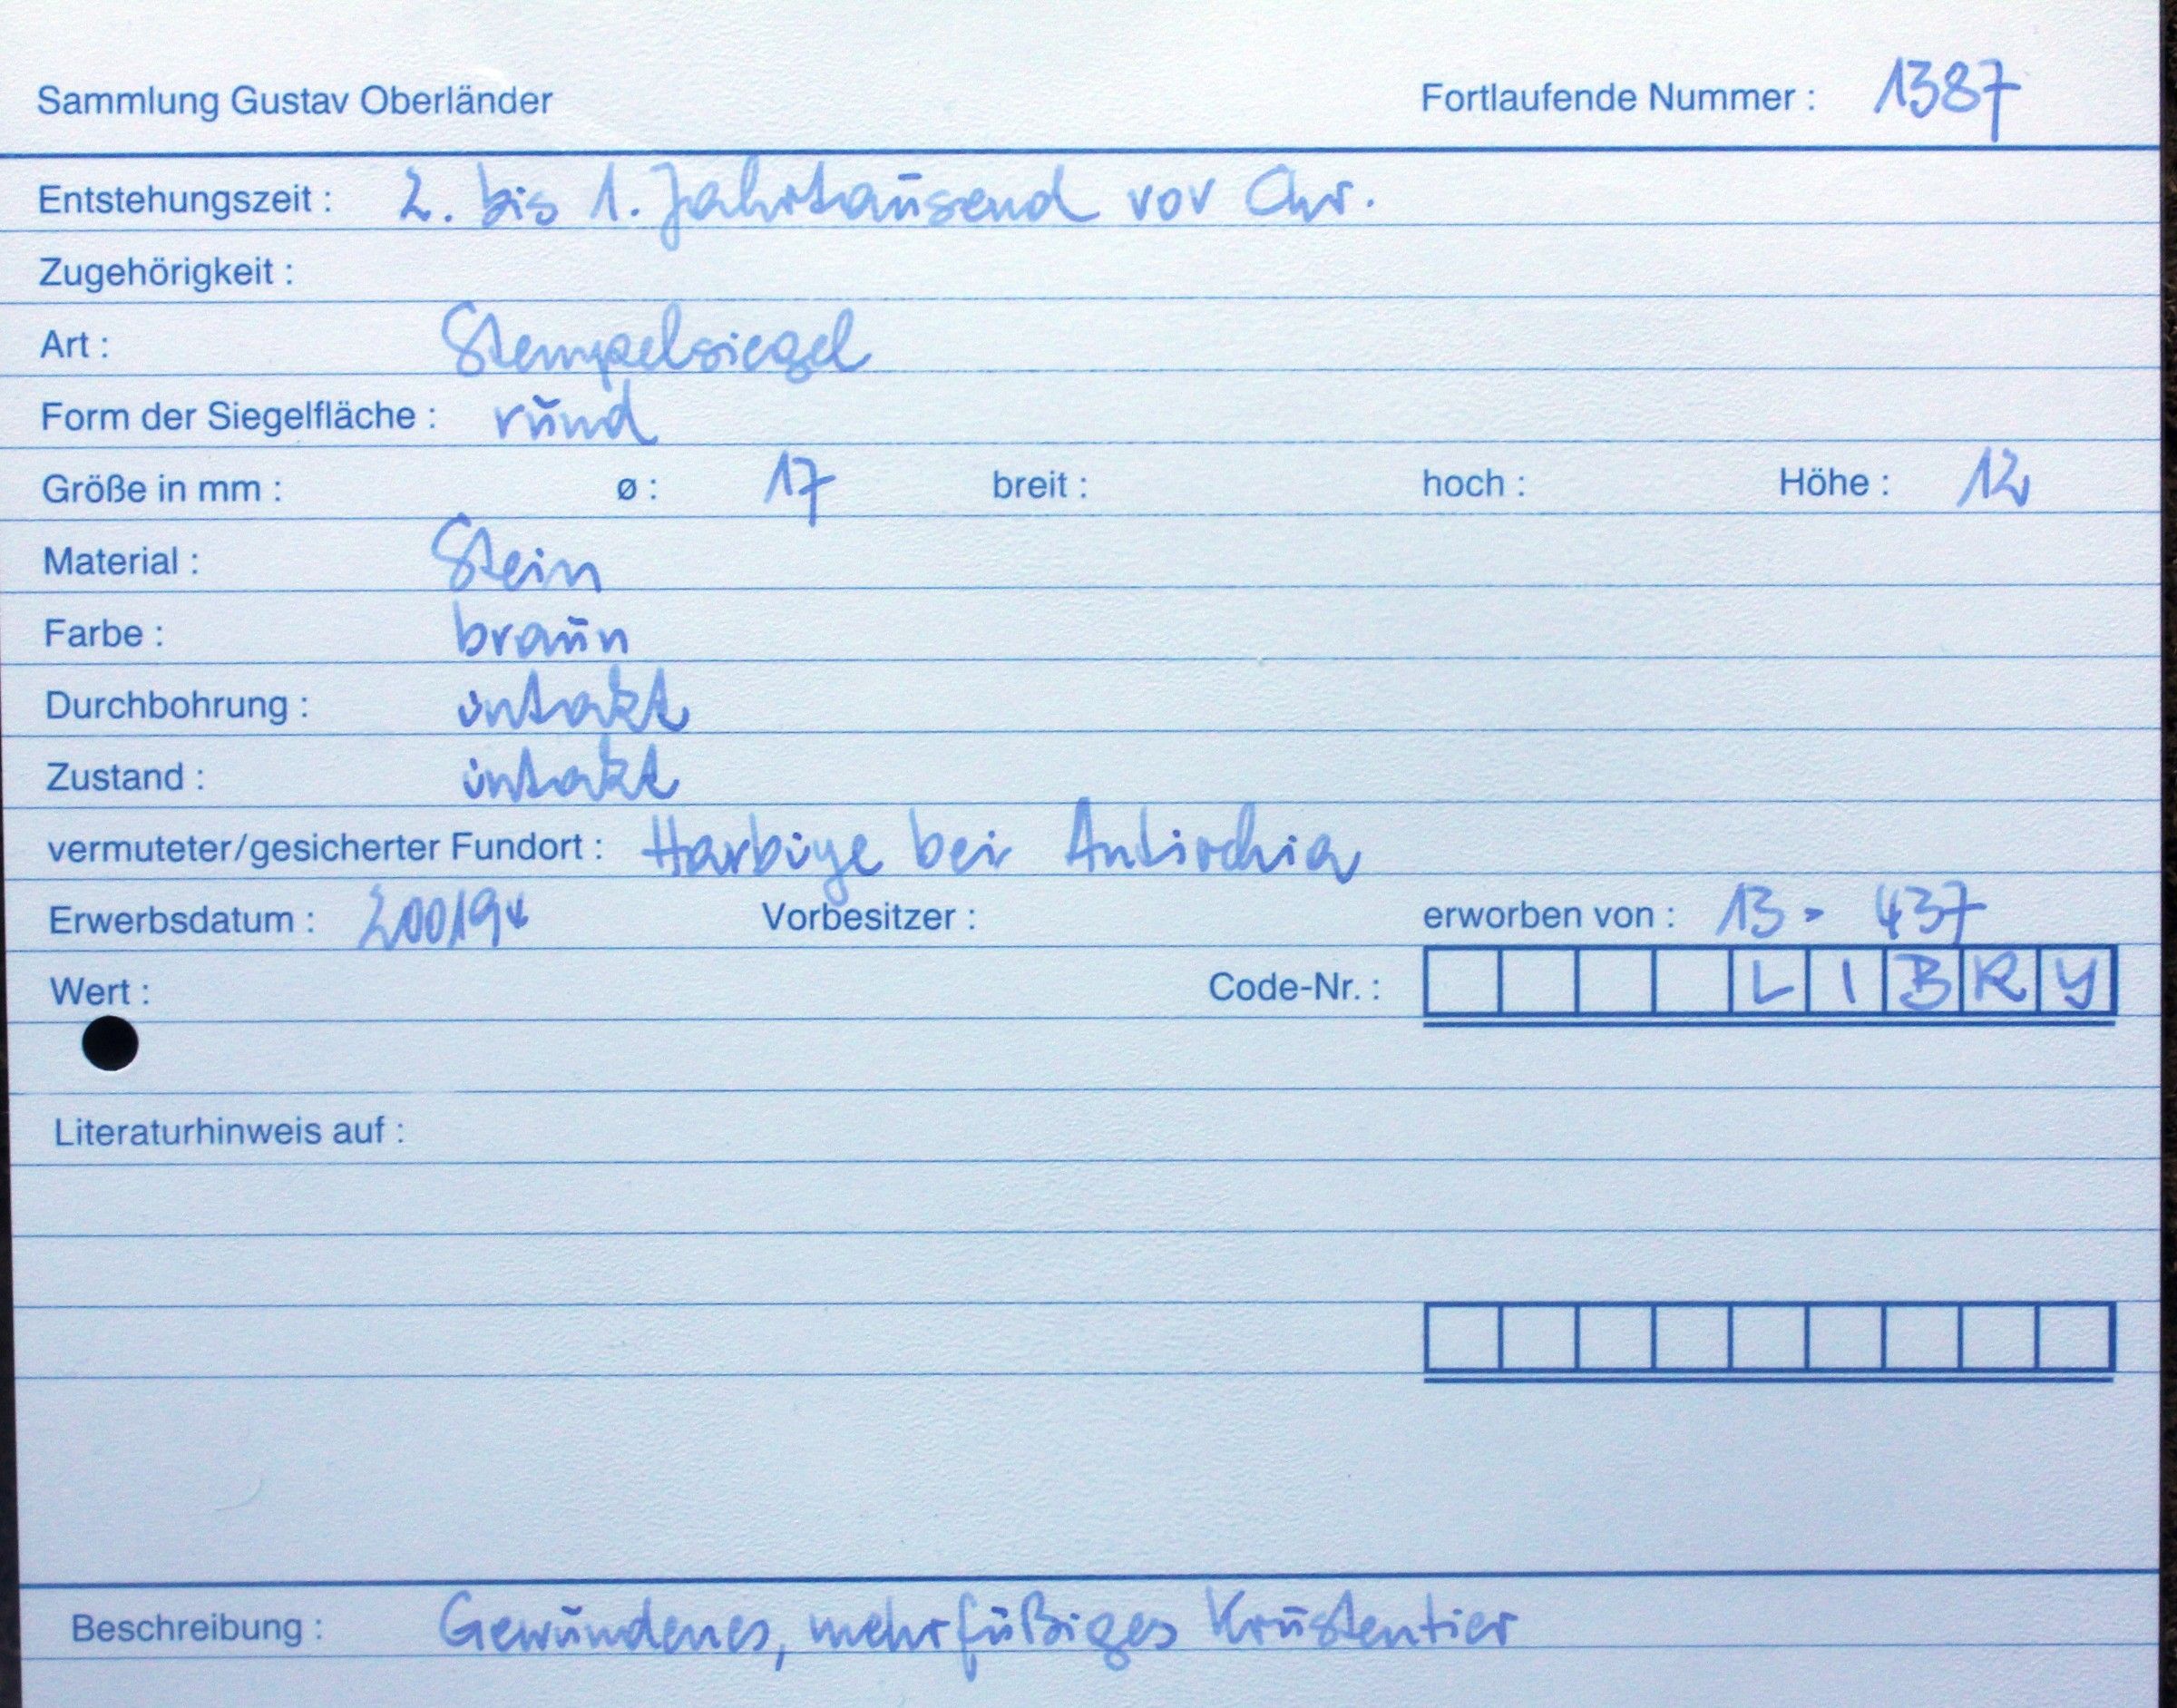 Sammlung Gustav Oberländer Fortlaufende Nummer : 1387
Entstehungszeit : 2. bis 1. Jahrtausend vor Chr.
Zugehörigkeit :
Art : Stempelsiegel
Form der Siegelfläche : rund
Größe in mm : ø : 17 breit : hoch : Höhe : 12
Material : Stein
Farbe : braun
Durchbohrung : intakt
Zustand : intakt
vermuteter/gesicherter Fundort : Harbiye bei Antiochia
Erwerbsdatum : Vorbesitzer : erworben von : 13 - 437
Wert : Code-Nr. : L I B R Y
Literaturhinweis auf :
Beschreibung : Gewundenes, mehrfüßiges Krustentier